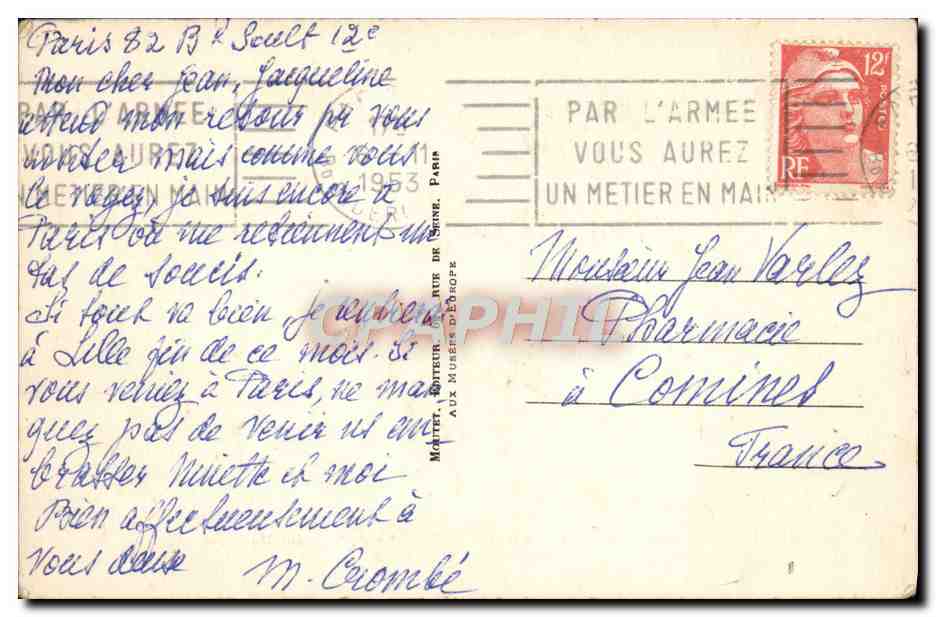 Paris 82 Bd Soult 12e
Mon cher Jean, Jacqueline
attend mon retour pr vous
inviter mais comme vous
le voyez, je suis encore à
Paris où me retiennent un
tas de soucis.
Si tout va bien, je rentrerai
à Lille fin de ce mois. Si
vous veniez à Paris, ne man
quez pas de venir ns em
brasser Ninette et moi
Bien affectueusement à
vous deux
M. Crombé
MOUTET, EDITEUR, RUE DE SEINE, PARIS
AUX MUSÉES D'EUROPE
PAR L'ARMEE
VOUS AUREZ
UN METIER EN MAIN
PAR L'ARMEE
VOUS AUREZ
UN METIER EN MAIN
11
1953
12F
POSTES
RF
Monsieur Jean Varlez
Pharmacie
à Comines
France
CPAPHIL